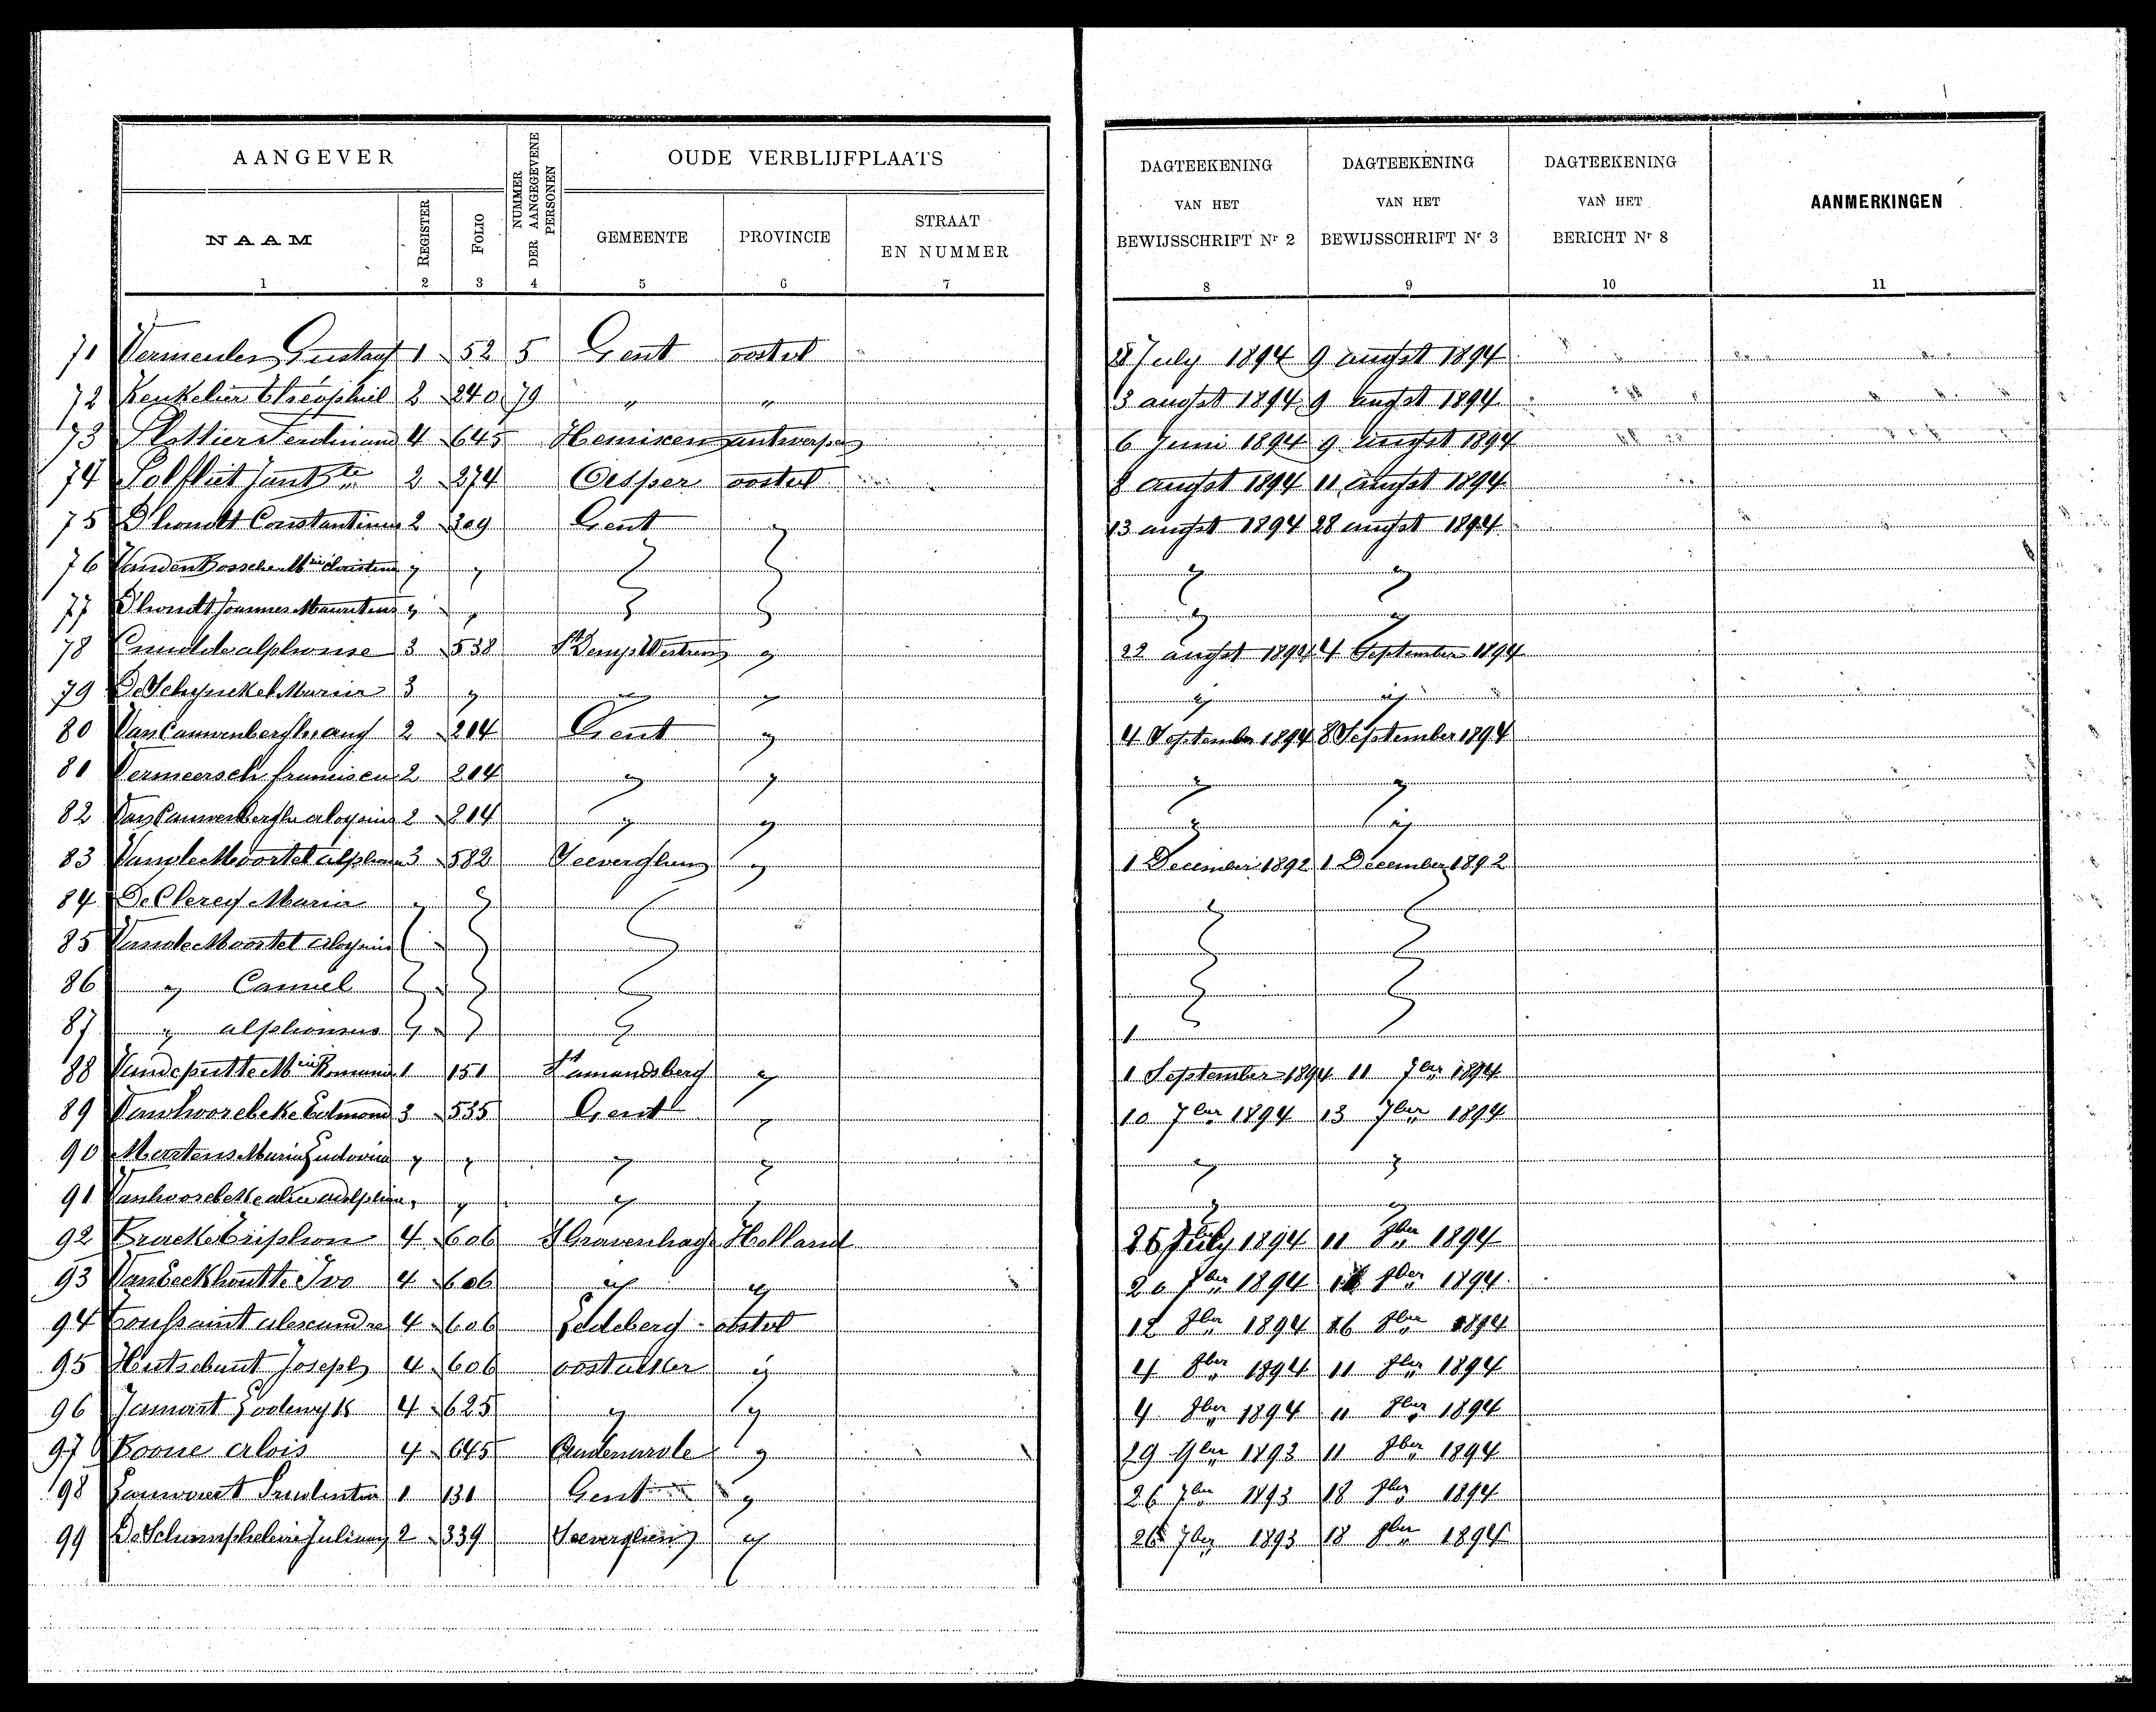 AANGEVER
NUMMER DER AANGEGEVENE PERSONEN
OUDE VERBLIJFPLAATS
DAGTEEKENING VAN HET BEWIJSSCHRIFT Nr 2
DAGTEEKENING VAN HET BEWIJSSCHRIFT Nr 3
DAGTEEKENING VAN HET BERICHT Nr 8
AANMERKINGEN
NAAM
REGISTER
FOLIO
GEMEENTE
PROVINCIE
STRAAT EN NUMMER
1 2 3 4 5 6 7 8 9 10 11
71 Vermeulen Gustaaf 1 52 5 Gent oostvl 28 July 1894 9 augst 1894
72 Keukelier Théophiel 2 240 79 " " 3 augst 1894 9 augst 1894
73 Ferdinand 4 645 Hemixem antwerpen 6 Juni 1894 9 augst 1894
74 Polfliet Jan Bte 2 274 oostvl 8 augst 1894 11 augst 1894
75 D'hondt Constantinus 2 309 Gent " 13 augst 1894 28 augst 1894
76 Vanden Bossche Mie " " " " " "
77 D'hondt Joannes Mauritius " " " " " "
78 Cnudde alphonse 3 538 St Denys Westrem " 22 augst 1894 4 September 1894
79 De Schynckel Maria 3 " " " " "
80 Van Cauwenberghe aug 2 214 Gent " 4 September 1894 8 September 1894
81 Vermeersch 2 214 " " " "
82 Van Cauwenberghe aloysius 2 214 " " " "
83 Vande Moortel alphons 3 582 Seeverghem " 1 December 1892 1 December 1892
84 De Clercq Maria " " " " "
85 Vande Moortel aloysius " " " " "
86 " Camiel " " " " "
87 " alphonsus " " " 1
88 Vandeputte Mie Romanie 1 151 St amandsberg " 1 September 1894 11 7ber 1894
89 Vanhoorebeke Edmond 3 535 Gent " 10 7ber 1894 13 7ber 1894
90 Martens Maria Ludovica " " " " " "
91 Vanhoorebeke " " " " " "
92 Bracke Triphon 4 606 S'Gravenhage Holland 25 July 1894 11 8ber 1894
93 Van Eeckhoutte Ivo 4 606 " " 20 7ber 1894 8ber 1894
94 Toussaint alexandre 4 606 Ledeberg oostvl 12 8ber 1894 16 8ber 1894
95 Joseph 4 606 oostacker " 4 8ber 1894 11 8ber 1894
96 Lodewyk 4 625 " " 4 8ber 1894 11 8ber 1894
97 Boone alois 4 645 Audenarde " 29 9ber 1893 11 8ber 1894
98 1 131 Gent " 26 7ber 1893 18 8ber 1894
99 De Schamphelaire 2 339 Seeverghem " 26 7ber 1893 18 8ber 1894